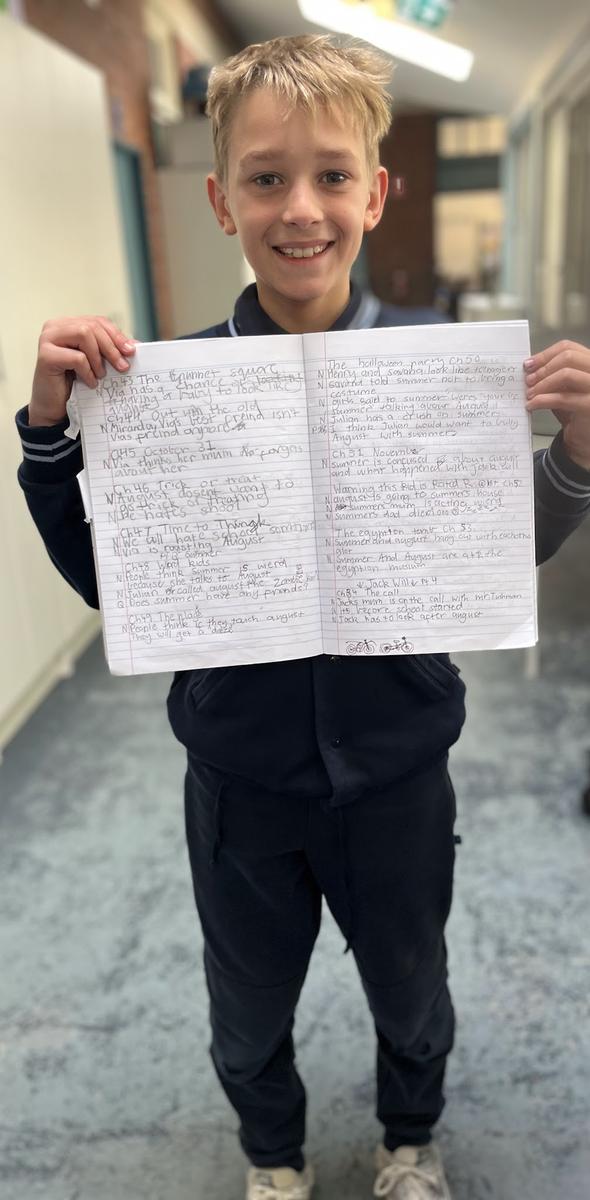 Ch43 The Bunnet square
N Via has a chance of
having a baby to look like
august
Ch44 Out with the old
N Miranda, Via's best freind isn't
Vias freind anymore
Ch45 October 31
N Via thinks her mum forgos
about her
Ch46 Trick or treat
N August dosent want to
go trick or treating
N He hates school
Ch47 Time to Think
N We all hate school sometimes
N via is roasting August
Pt 3 summer
Ch48 Werd kids
N People think summer is werd
because she talks to August
N Julian called august the Zombie kid
Q Does summer have any freinds?
Ch49 The Plage
N People think if they touch august
They will get a dese
The halloween party Ch50
N Henry and savana look like teenagers
N savana told summer not to bring a
costume
N girls said to summer were's your
summer talking about August
N Julian has a crush on summer
I think Julian would want to bully
August with summer
Ch51 November
N summer is confused about august
and what happened with jack will
Warning this kid is Rated R Ch52
N august is going to summers house
N summers mum is acting
N summers dad died
The egyption tomb Ch 53
N Summer and august hang out with eachother
alot
N Summer And August are at the
egyption museum
Jack Will Pt4
Ch54 The call
N Jacks mum is on the call with mr Tushman
N its before school started
N Jack has to look after august